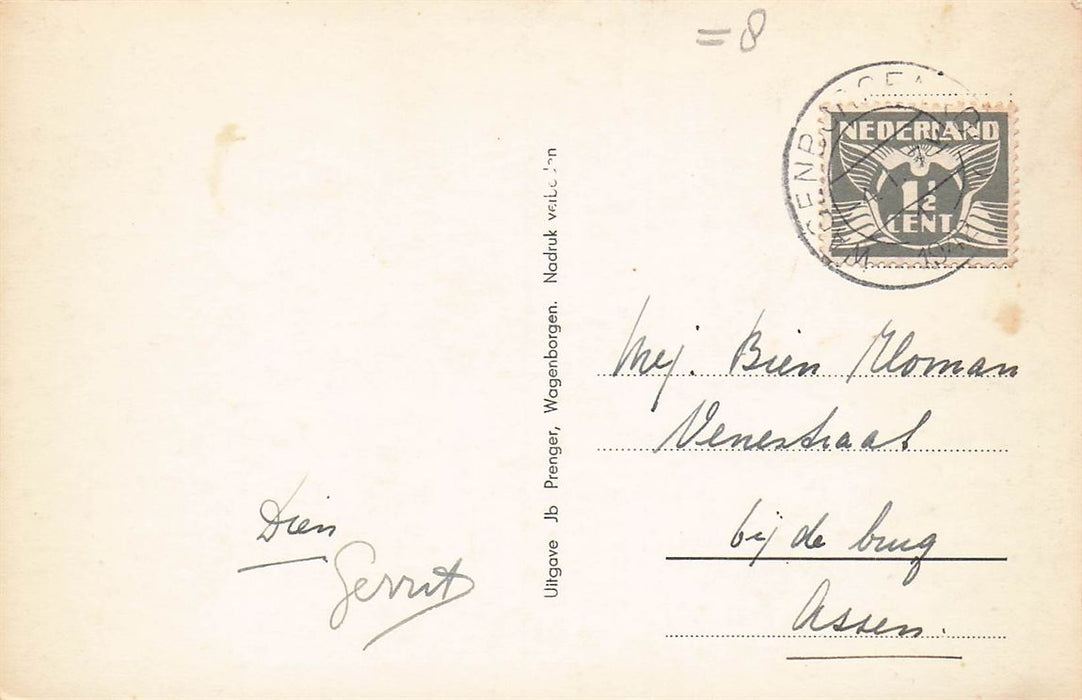 = 8
NEDERLAND
1½
CENT
Mej. Bien Kloman
Venestraat
bij de brug
Assen.
Uitgave Jb Prenger, Wagenborgen. Nadruk verboden
Dien
Gerrit